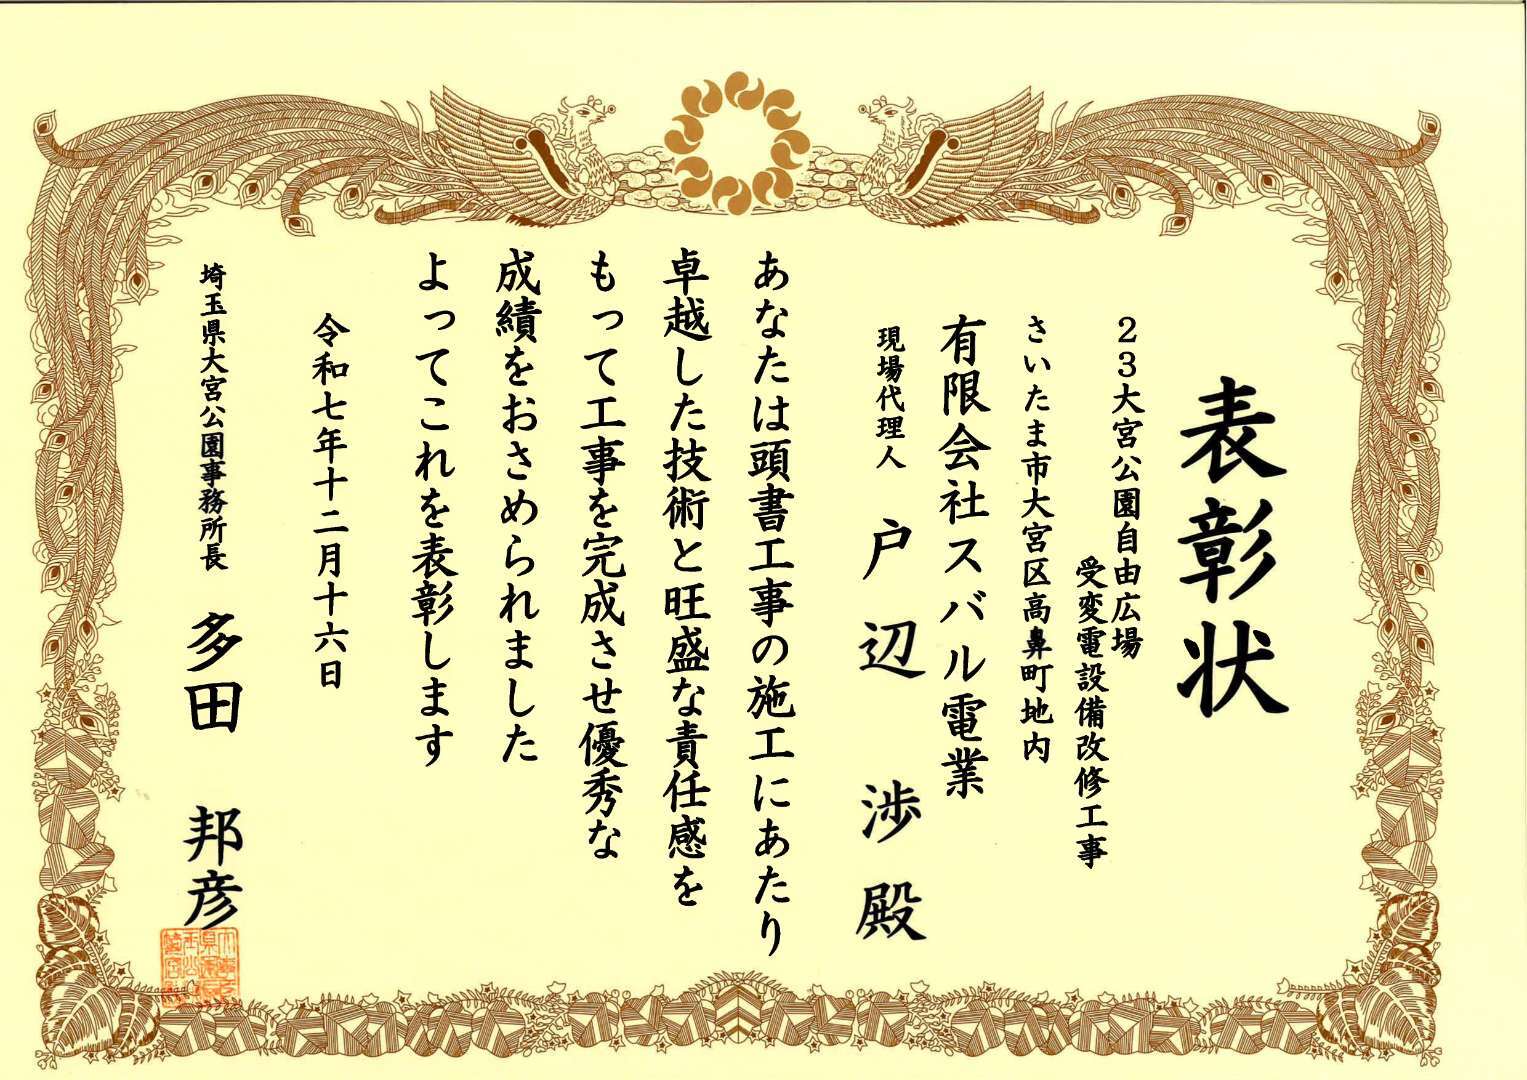 表彰状
２３大宮公園自由広場
受変電設備改修工事
さいたま市大宮区高鼻町地内
有限会社スバル電業
現場代理人 戸辺 渉 殿
あなたは頭書工事の施工にあたり
卓越した技術と旺盛な責任感を
もって工事を完成させ優秀な
成績をおさめられました
よってこれを表彰します
令和七年十二月十六日
埼玉県大宮公園事務所長 多田 邦彦